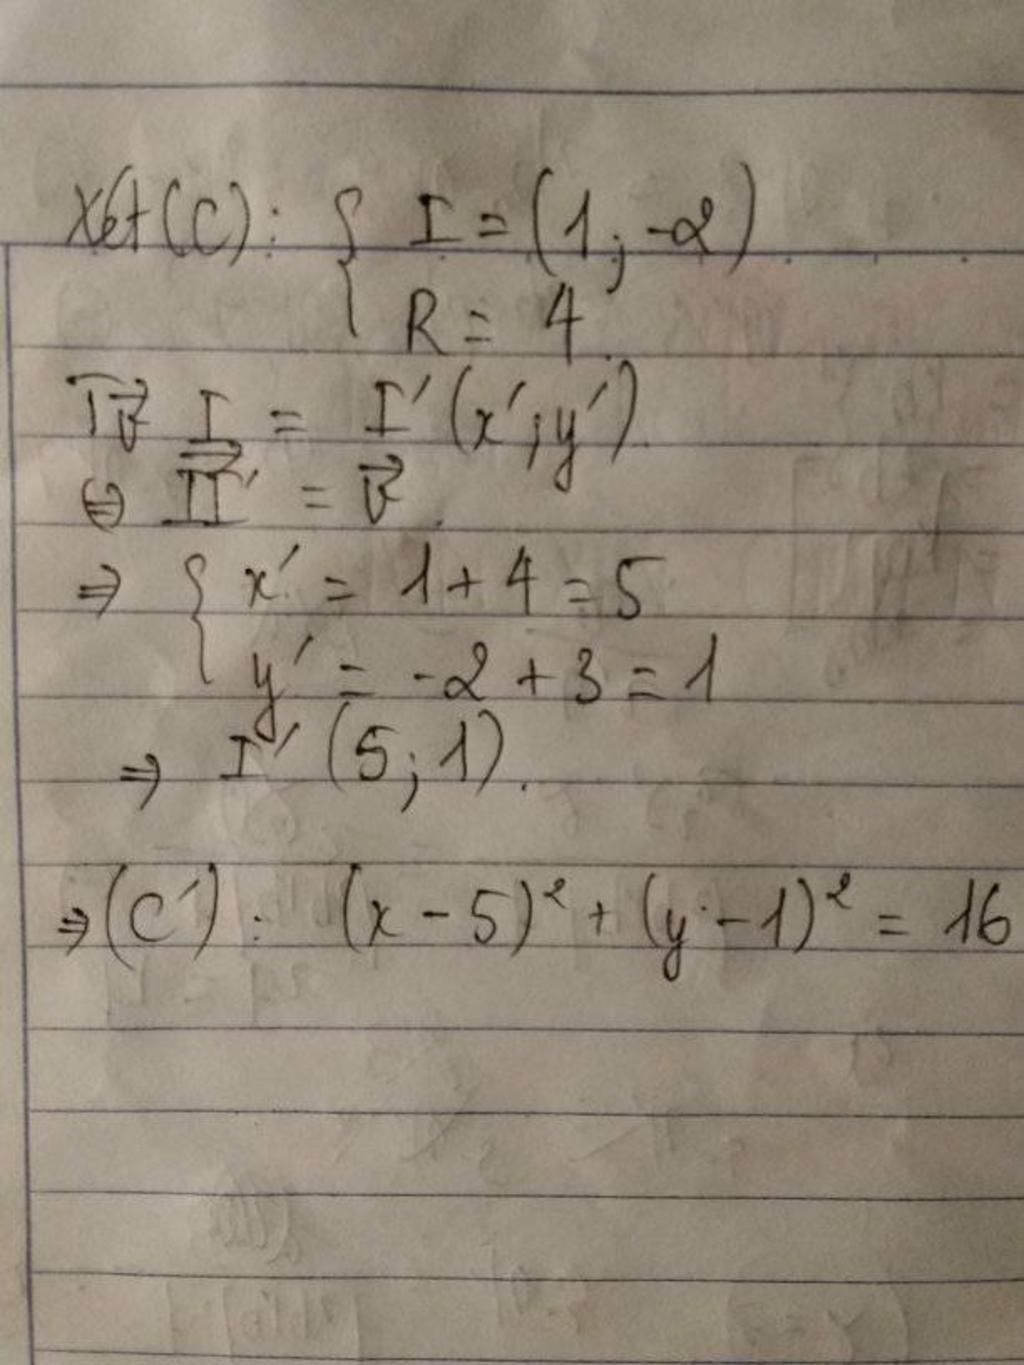 Xét (C): { I = (1; -2)
R = 4.
T_v⃗ I = I' (x'; y').
⇔ II'⃗ = v⃗.
⇒ { x' = 1 + 4 = 5
y' = -2 + 3 = 1
⇒ I' (5; 1).
⇒ (C'): (x - 5)² + (y - 1)² = 16